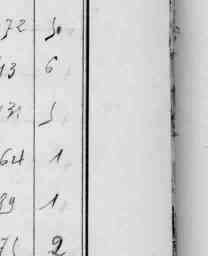 72 5
13 6
31 5
64 1
89 1
75 2